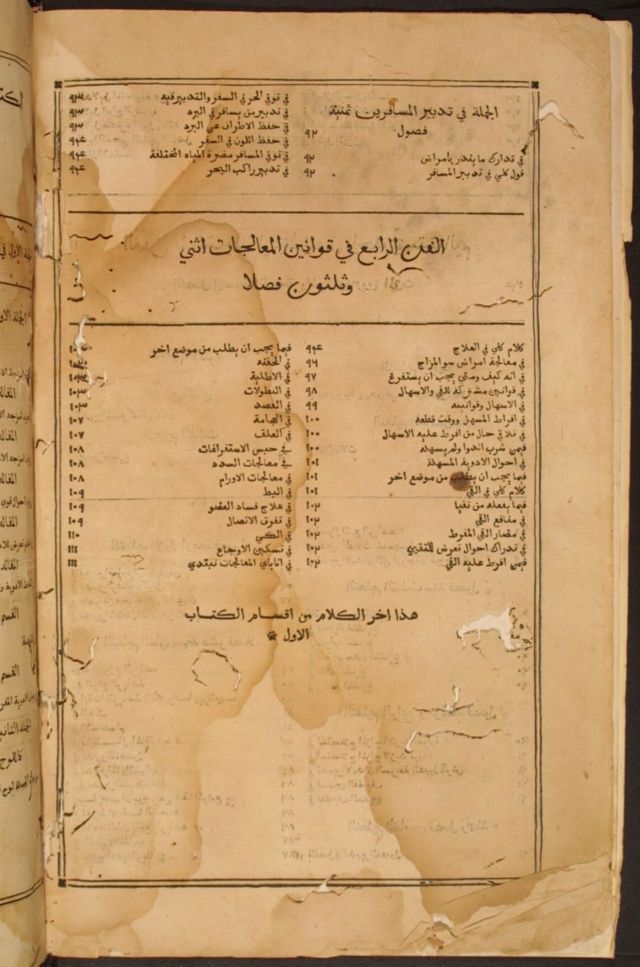 الجملة في تدبير المسافرين ثمنية
فصول ٩٢
في تدارك ما يندر بامراض ٩٢
قول كلي في تدبير المسافر ٩٢
في توقي الحر في السفر والتدبير فيه ٩٣
في تدبير من يسافر في البرد ٩٣
في حفظ الاطراف عن البرد ٩٣
في حفظ اللون في السفر ٩٤
في توقي المسافر مضرة المياه المختلفة ٩٤
في تدبير راكب البحر ٩٤
الفن الرابع في قوانين المعالجات اثني
وثلثون فصلا
كلام كلي في العلاج ٩٤
في معالجة امراض سو المزاج ٩٦
في انه كيف ومتى يجب ان يستفرغ ٩٧
في قوانين مشتركة للقي والاسهال ٩٨
في الاسهال وقوانينه ٩٩
في افراط المسهل ووقت قطعه ١٠٠
في تلافي حال من افرط عليه الاسهال ١٠٠
فيمن شرب الدوا ولم يسهله ١٠٠
في احوال الادوية المسهلة ١٠١
فيما يجب ان يطلب من موضع اخر ١٠١
كلام كلي في القي ١٠١
فيما يفعله من تقيا ١٠٢
في منافع القي ١٠٢
في مضار القي المفرط ١٠٢
في تدراك احوال تعرض للتقيي ١٠٢
فيمن افرط عليه القي ١٠٢
فيما يجب ان يطلب من موضع اخر
في الحقنه
في الاطلية
في النطولات ١٠٣
في الفصد ١٠٣
في الحجامة ١٠٧
في العلق ١٠٧
في حبس الاستفراغات ١٠٨
في معالجات السدد ١٠٨
في معالجات الاورام ١٠٨
في البط ١٠٩
في علاج فساد العضو ١٠٩
في تفرق الاتصال ١٠٩
في الكي ١١٠
في تسكين الاوجاع ١١١
في اناباي المعالجات نبتدي ١١١
هذا اخر الكلام من اقسام الكتاب
الاول